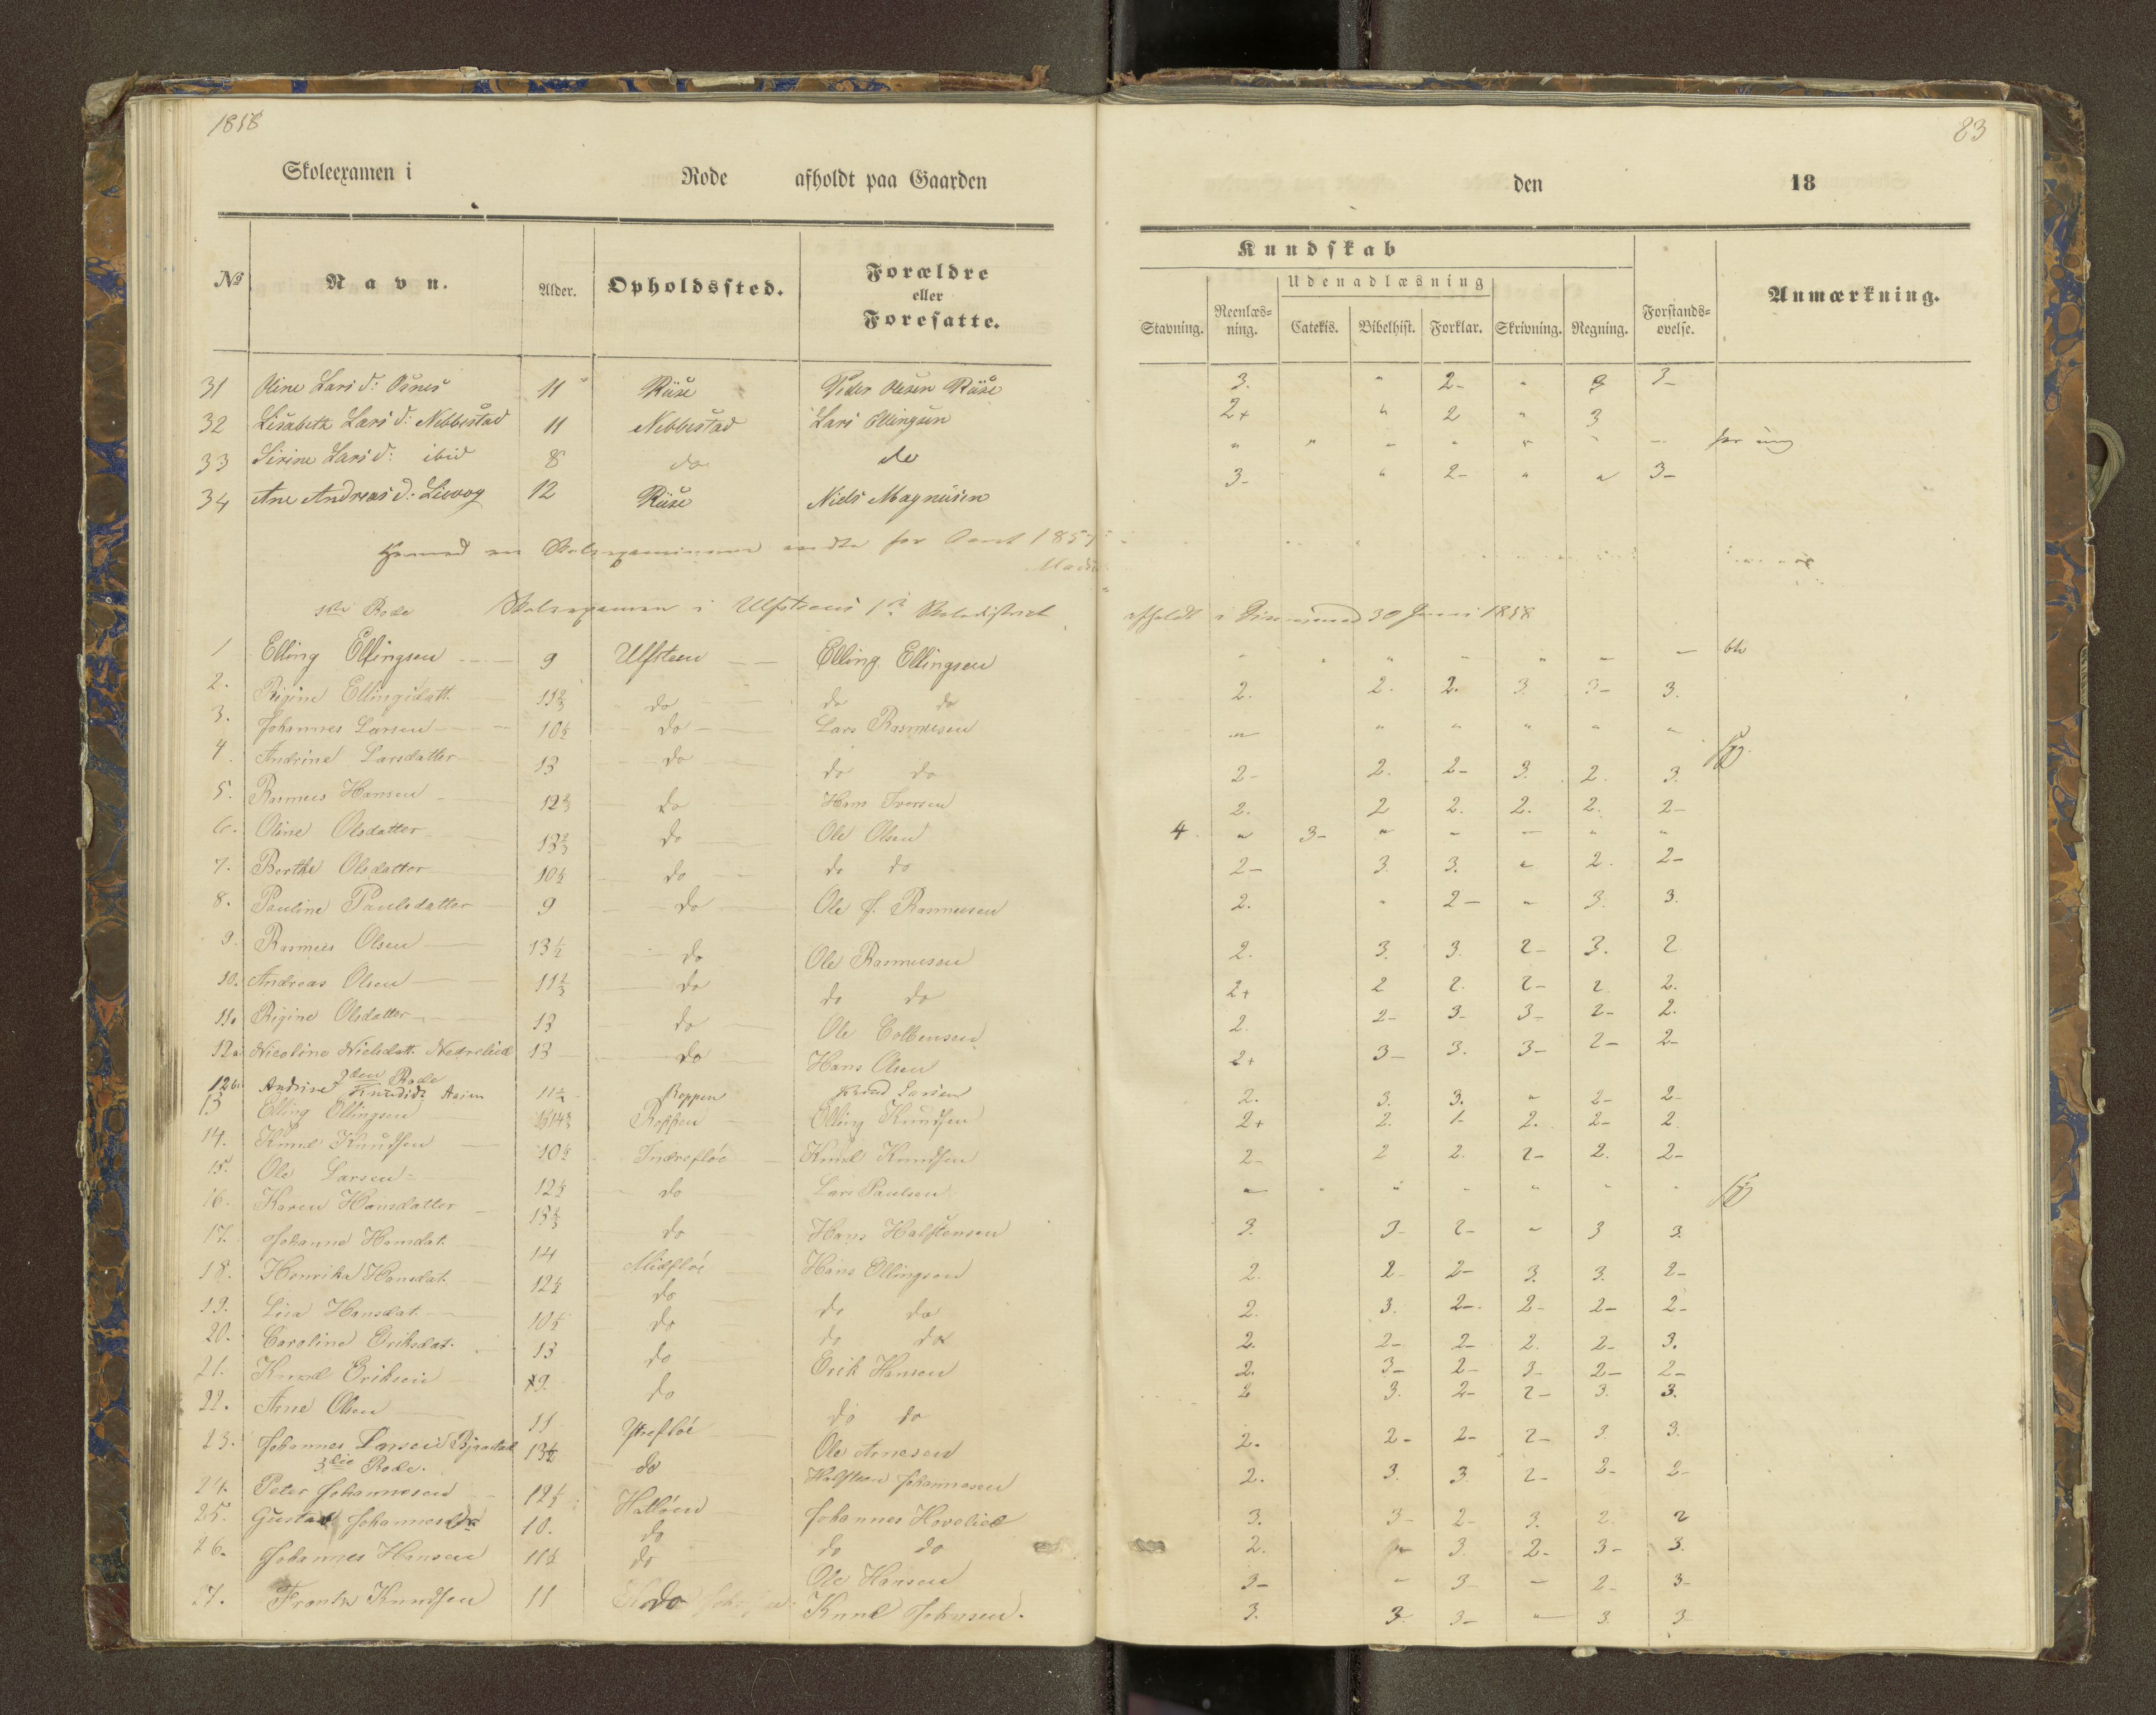 1858
83
Skoleexamen i Rode afholdt paa Gaarden den 18
Kundskab
Udenadlæsning
№ Navn. Alder. Opholdssted. Forældre eller Foresatte. Stavning. Reenlæsning. Catekis. Bibelhist. Forklar. Skrivning. Regning. Forstandsøvelse. Anmærkning.
31 Oline Lars d: Osnes 11 Riise Peder Olesen Riise 3. " 2- " 3 3-
32 Lisabeth Lars d: Nebbestad 11 Nebbestad Lars Ellingsen 2+ " 2 " 3
33 Sirine Lars d: ibid 8 do do " " - " " " - for ung
34 Ane Andreas d: Lievog 12 Riise Niels Magnusen 3- " 2- " " 3-
for Aaret 1857
1ste Rode Skoleexamen i Ulfsteens 1ste Skoledistrict afholdt i 30 Juni 1858
1 Elling Ellingsen 9 Ulfsteen Elling Ellingsen - " " - " - -
2. Rigine Ellingsdatt. 11 2/3 do do do 2. 2. 2. 3. 3- 3.
3. Johannes Larsen 10 1/2 do Lars Rasmusen " " " " " "
4. Andrine Larsdatter 13 do do do 2- 2. 2- 3. 2. 3.
5. Rasmus Hansen 12 2/3 do Hans Iversen 2. 2 2. 2. 2. 2-
6. Oline Olsdatter 13 2/3 do Ole Olsen 4. " 3- " - - " "
7. Berthe Olsdatter 10 1/2 do do do 2- 3. 3. " 2. 2-
8. Pauline Paulsdatter 9 do Ole J. Rasmusen 2. " 2- " 3. 3.
9. Rasmus Olsen 13 1/2 do Ole Rasmusen 2. 3. 3. 2- 3. 2
10. Andreas Olsen 11 2/3 do do do 2+ 2 2. 2- 2. 2.
11. Rigine Olsdatter 13 do Ole Colbensen 2. 2- 3- 3- 2- 2.
12a Nicoline Nielsdatt. Nedrelied 13 do Hans Olsen 2+ 3- 3. 3- 2- 2-
2den Rode
12b. Andrine Knudsd: Aasen 11 1/2 Roppen Knud Larsen 2. 3. 3. " 2- 2-
13 Elling Ellingsen 14 2/3 Roppen Elling Knudsen 2+ 2. 1- 2. 2- 2
14. Knud Knudsen 10 1/2 Indrefløe Knud Knudsen 2- 2 2. 2- 2. 2-
15. Ole Larsen 12 1/2 do Lars Paulsen - " " - " " "
16. Karen Hansdatter 13 1/3 do Hans Halstensen 3. 3- 2- " 3 3.
17. Johanne Hansdat. 14 Midfløe Hans Ellingsen 2. 2- 2- 3. 3. 2-
18. Henrika Hansdat. 12 1/2 do do do 2. 3. 2- 2- 2- 2-
19. Lisa Hansdat. 10 1/2 do do do 2. 2- 2- 2. 2- 3.
20. Caroline Eriksdat. 13 do Erik Hansen 2. 3- 2- 3- 2- 2-
21. Knud Eriksen 9. do do do 2 3. 2- 2- 3. 3.
22. Arne Olsen 11 Ytrefløe Ole Arnesen 2. 2- 2- 2- 3. 3.
23. Johannes Larsen Bjaastad 13 1/2 do Halsteen Johannesen 2. 3. 3. 2- 2- 2-
3die Rode.
24. Peter Johannesen 12 1/2 Hatløen Johannes Hovelied 3. 3- 2- 3. 2. 2
25. Gustav Johannes 10. do do do 2. " 3. 2- 3- 3.
26. Johannes Hansen 11 1/2 do Ole Hansen 3- - 3- - 2- 3-
27. Frants Knudsen 11 do Knud Johnsen. 3. 3. 3- - 3 3